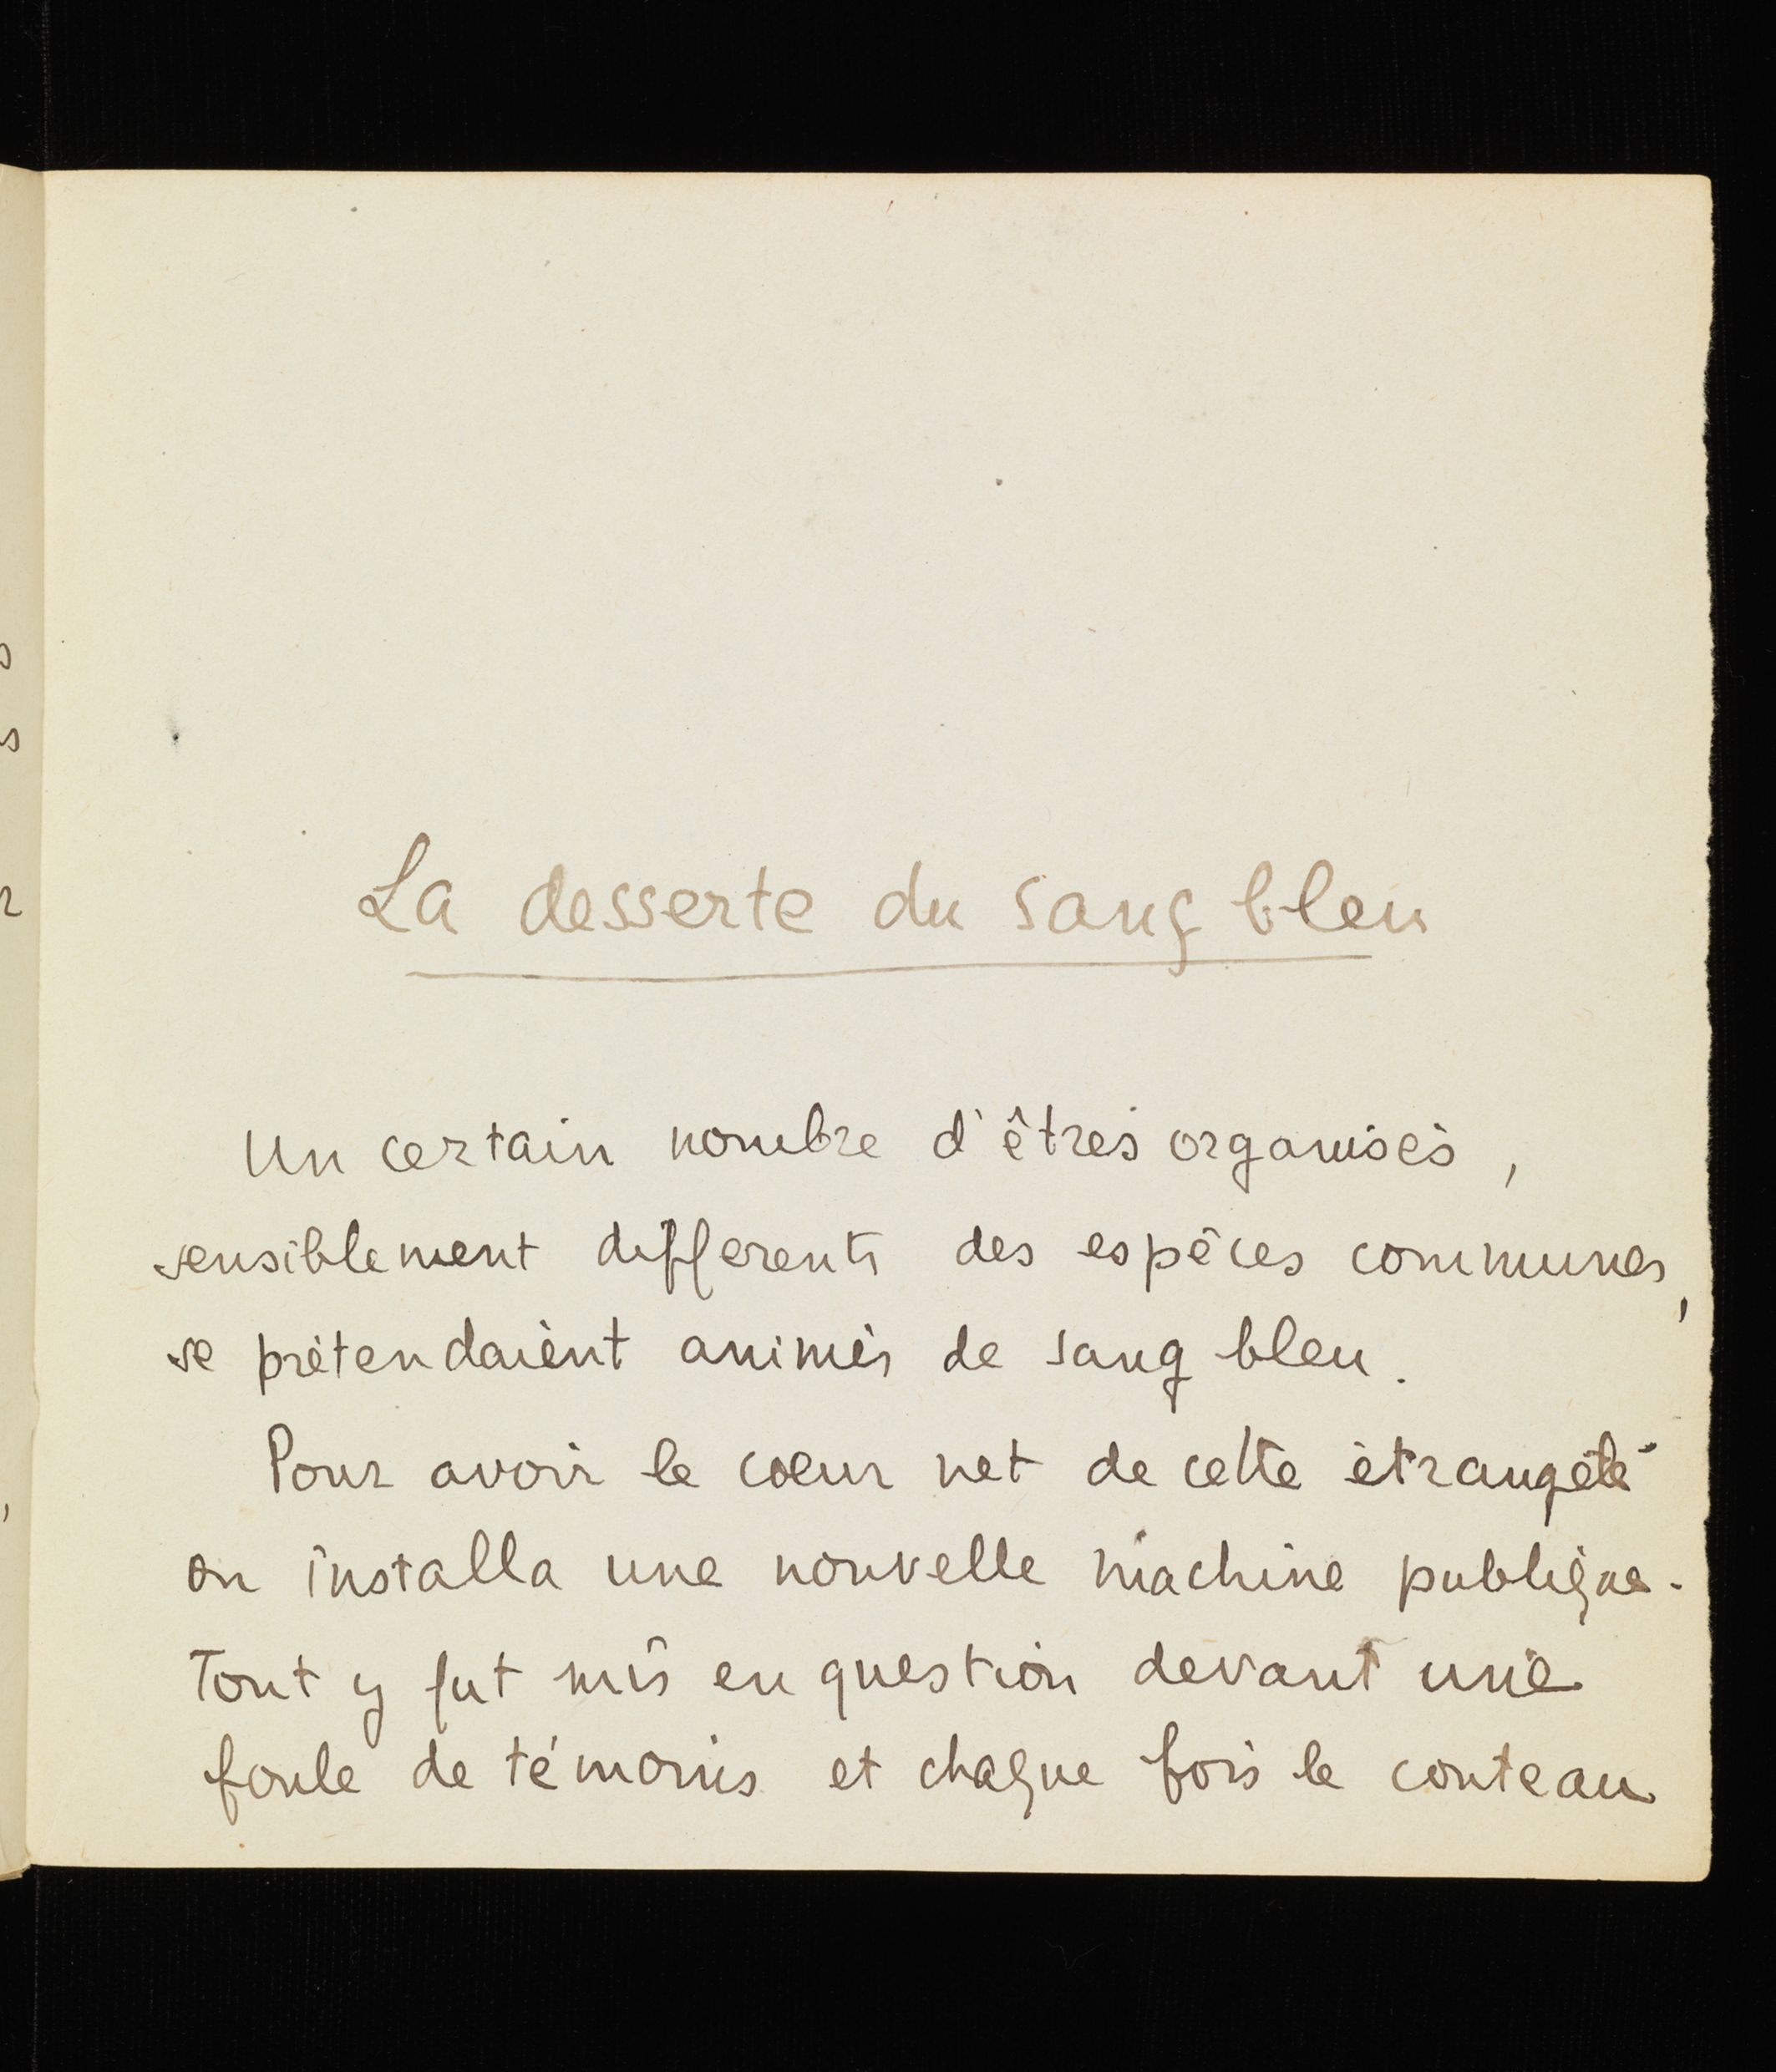 La desserte du sang bleu
Un certain nombre d'êtres organisés,
sensiblement différents des espèces communes,
se prétendaient animés de sang bleu.
Pour avoir le cœur net de cette étrangeté
on installa une nouvelle machine publique.
Tout y fut mis en question devant une
foule de témoins et chaque fois le couteau